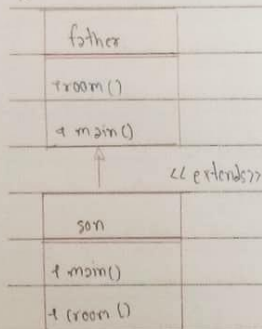 father
+room()
+ main()
<<extends>>
son
+ main()
+ (room ()